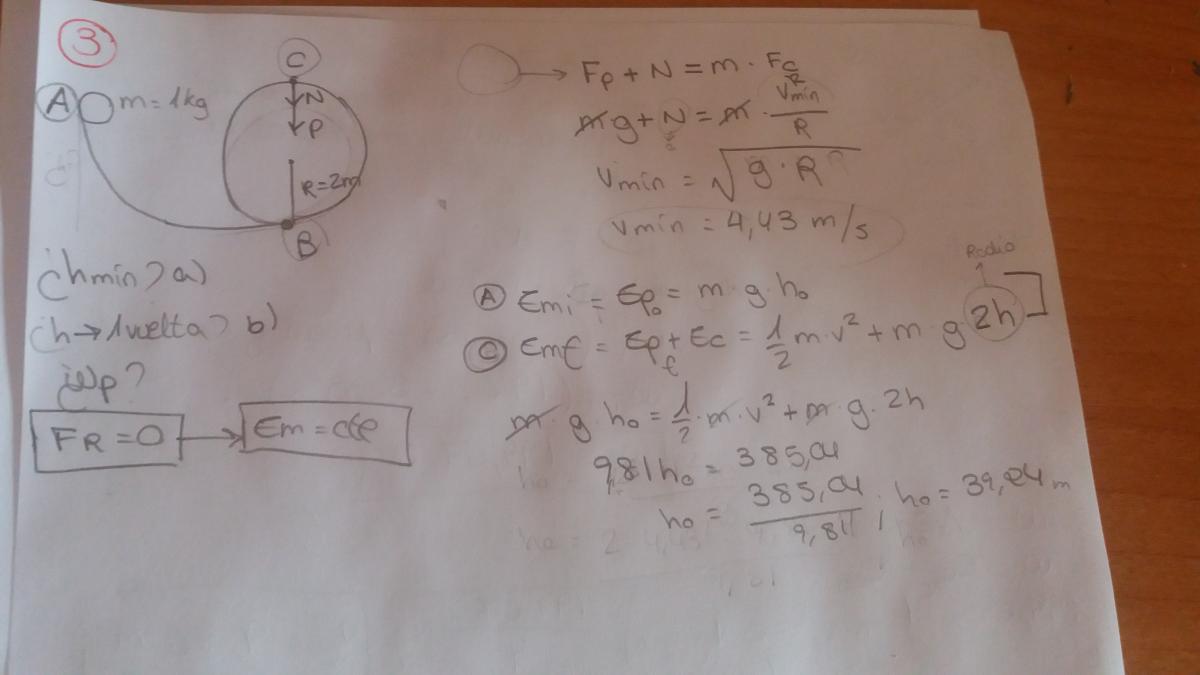 3
A m = 1kg
C
N
P
R = 2m
B
¿hmín? a)
¿h → 1 vuelta? b)
¿Wp?
FR = 0 → Em = cte
→ Fp + N = m · Fc
mg + N = m · v²mín / R
Vmín = √g · R
Vmín = 4,43 m/s
Radio
A Emi = Epo = m · g · ho
C Emf = Epf + Ec = 1/2 m · v² + m · g 2h
m · g · ho = 1/2 · m · v² + m · g · 2h
9,81 ho = 385,04
ho = 385,04 / 9,81 ; ho = 39,24 m